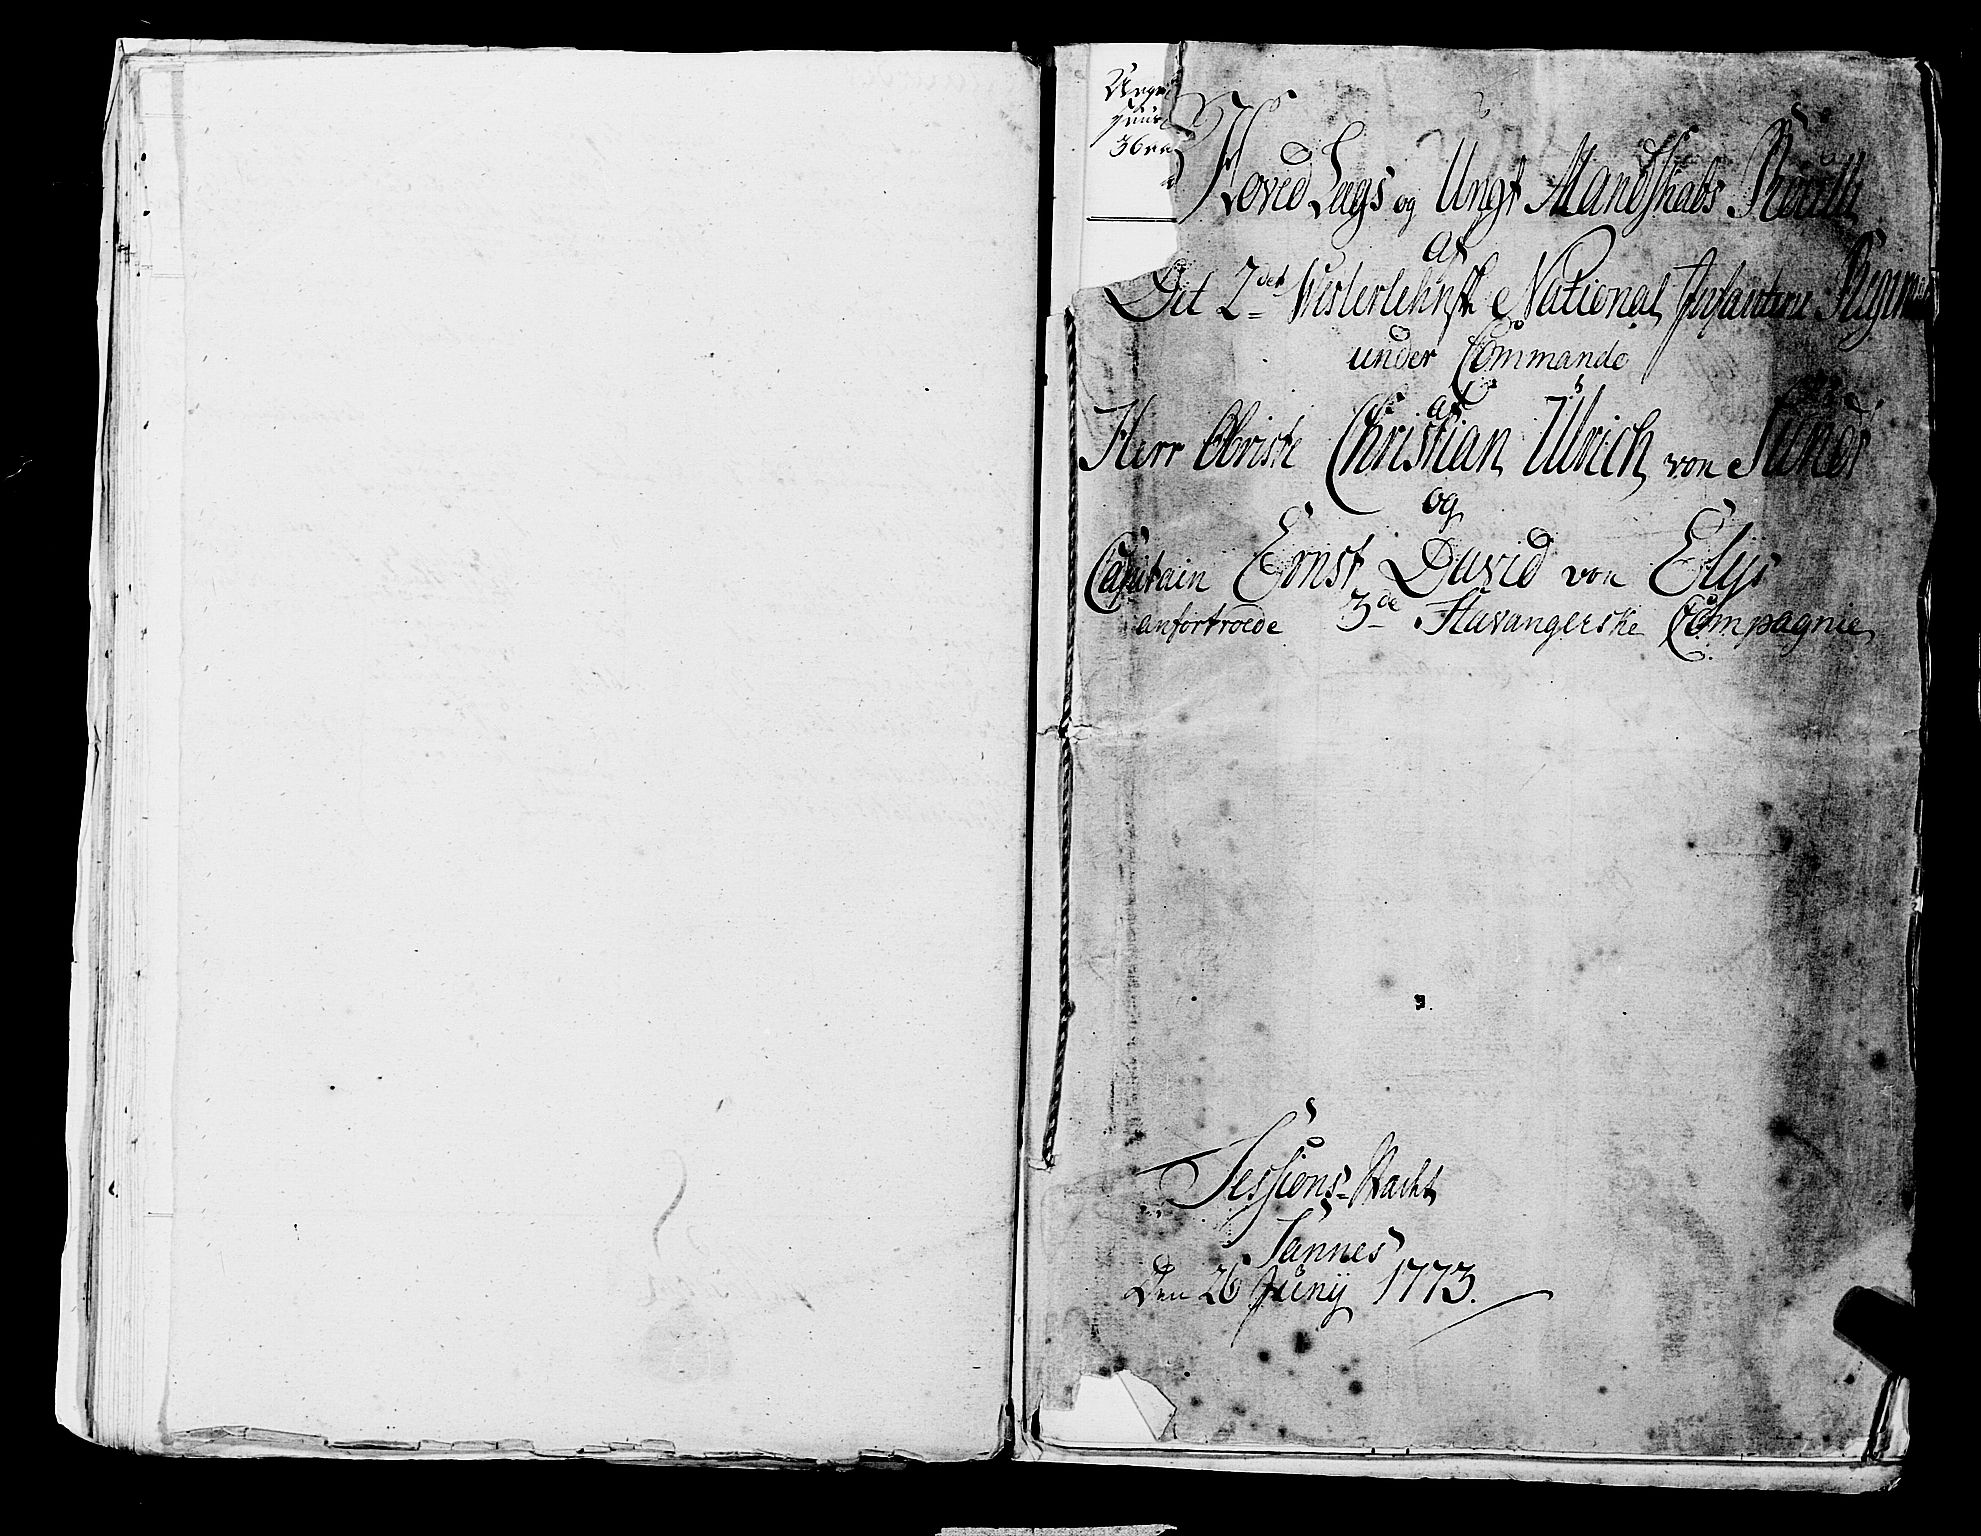 36
Hoved Lægs og Ungt Mandskabs Rulle
af
Det 2det Vesterlehnske National Infanterie Regiment
under Commando
af
Herr Obriste Christian Ulrich von
og
Capitain Ernst David von Elys
anfortroede 3de Stavangerske Compagnie
Sessions
Sannes
Den 26 Junij 1773.